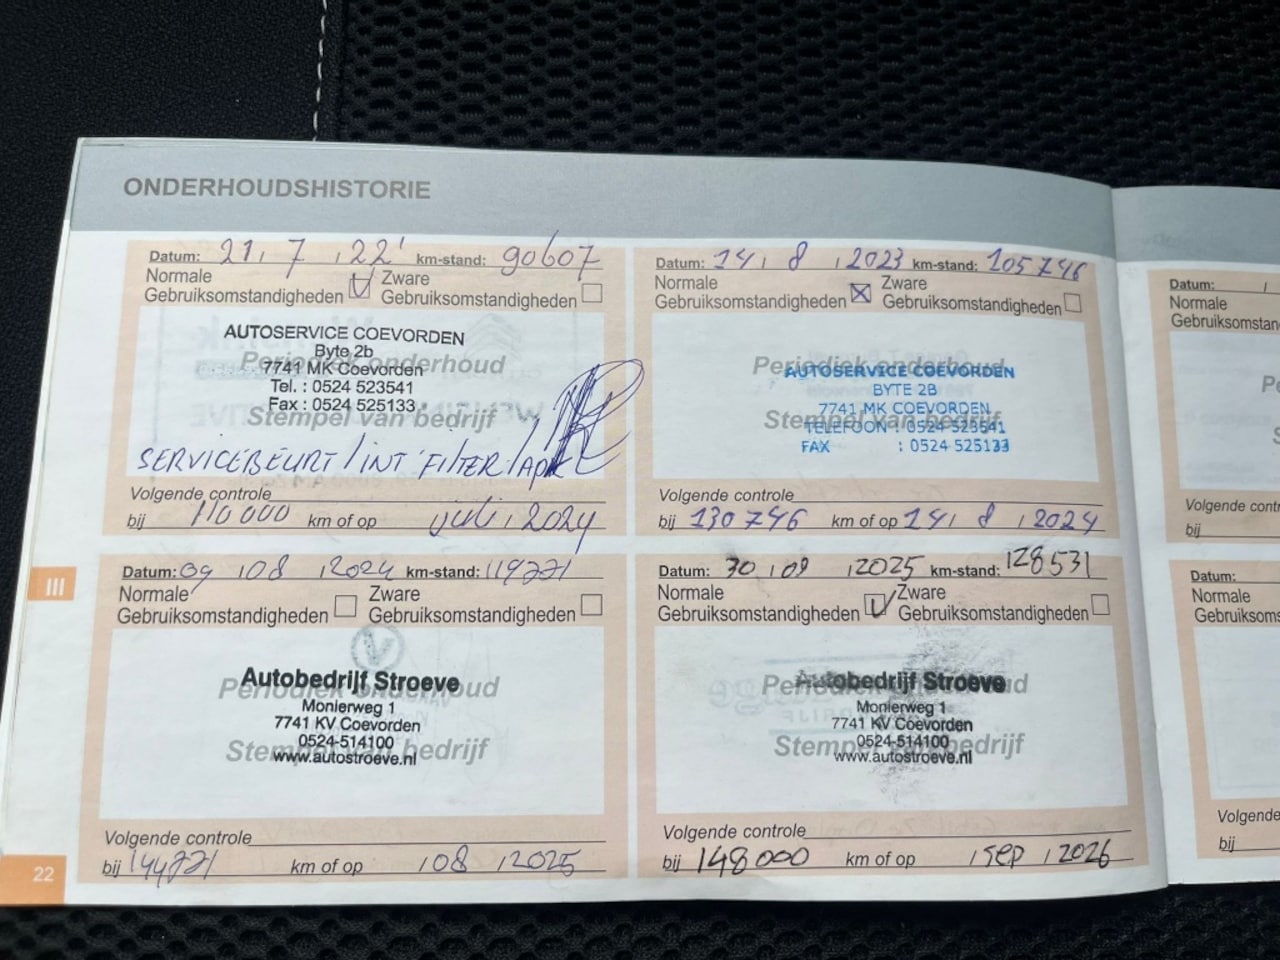 ONDERHOUDSHISTORIE
Datum: 21 , 7 , 22' km-stand: 90607
Normale Gebruiksomstandigheden
Zware Gebruiksomstandigheden
Periodiek onderhoud
Stempel van bedrijf
AUTOSERVICE COEVORDEN
Byte 2b
7741 MK Coevorden
Tel. : 0524 523541
Fax : 0524 525133
SERVICEBEURT / INT FILTER / APK
Volgende controle
bij 110000 km of op juli , 2024
Datum: 14 , 8 , 2023 km-stand: 105746
Normale Gebruiksomstandigheden
Zware Gebruiksomstandigheden
Periodiek onderhoud
Stempel van bedrijf
AUTOSERVICE COEVORDEN
BYTE 2B
7741 MK COEVORDEN
TELEFOON : 0524 523541
FAX : 0524 525133
Volgende controle
bij 130746 km of op 14 , 8 , 2024
III
Datum: 09 , 08 , 2024 km-stand: 119771
Normale Gebruiksomstandigheden
Zware Gebruiksomstandigheden
Periodiek onderhoud
Stempel van bedrijf
Autobedrijf Stroeve
Monierweg 1
7741 KV Coevorden
0524-514100
www.autostroeve.nl
Volgende controle
bij 144771 km of op , 08 , 2025
Datum: 30 , 09 , 2025 km-stand: 128531
Normale Gebruiksomstandigheden
Zware Gebruiksomstandigheden
Periodiek onderhoud
Stempel van bedrijf
Autobedrijf Stroeve
Monierweg 1
7741 KV Coevorden
0524-514100
www.autostroeve.nl
Volgende controle
bij 148000 km of op , sep , 2026
22
Datum:
Normale
Volgende
bij
Datum:
Normale
Volgende
bij